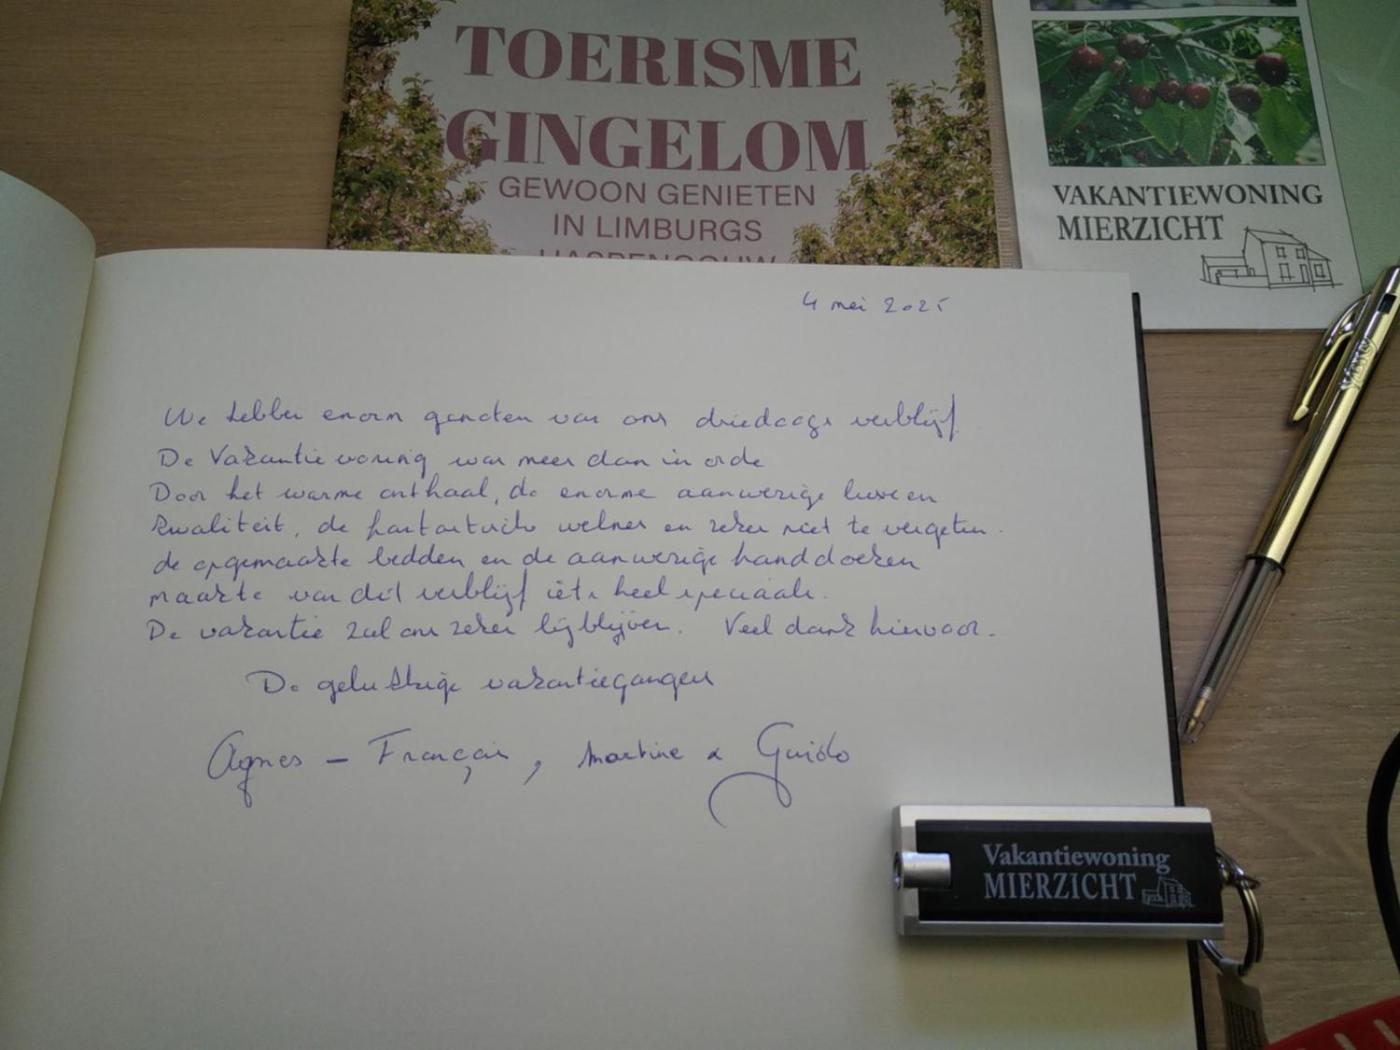 TOERISME
GINGELOM
GEWOON GENIETEN
IN LIMBURGS
HASPENGOUW
VAKANTIEWONING
MIERZICHT
4 mei 2025
We hebben enorm genoten van ons driedaags verblijf
De Vakantiewoning was meer dan in orde
Door het warme onthaal, de enorme aanwezige luxe en
kwaliteit, de fantastische welness en zeker niet te vergeten
de opgemaakte bedden en de aanwezige handdoeken
maakte van dit verblijf iets heel speciaals.
De vakantie zal ons zeker bijblijven. Veel dank hiervoor.
De gelukkige vakantiegangers
Agnes - François, Martine & Guido
Vakantiewoning
MIERZICHT